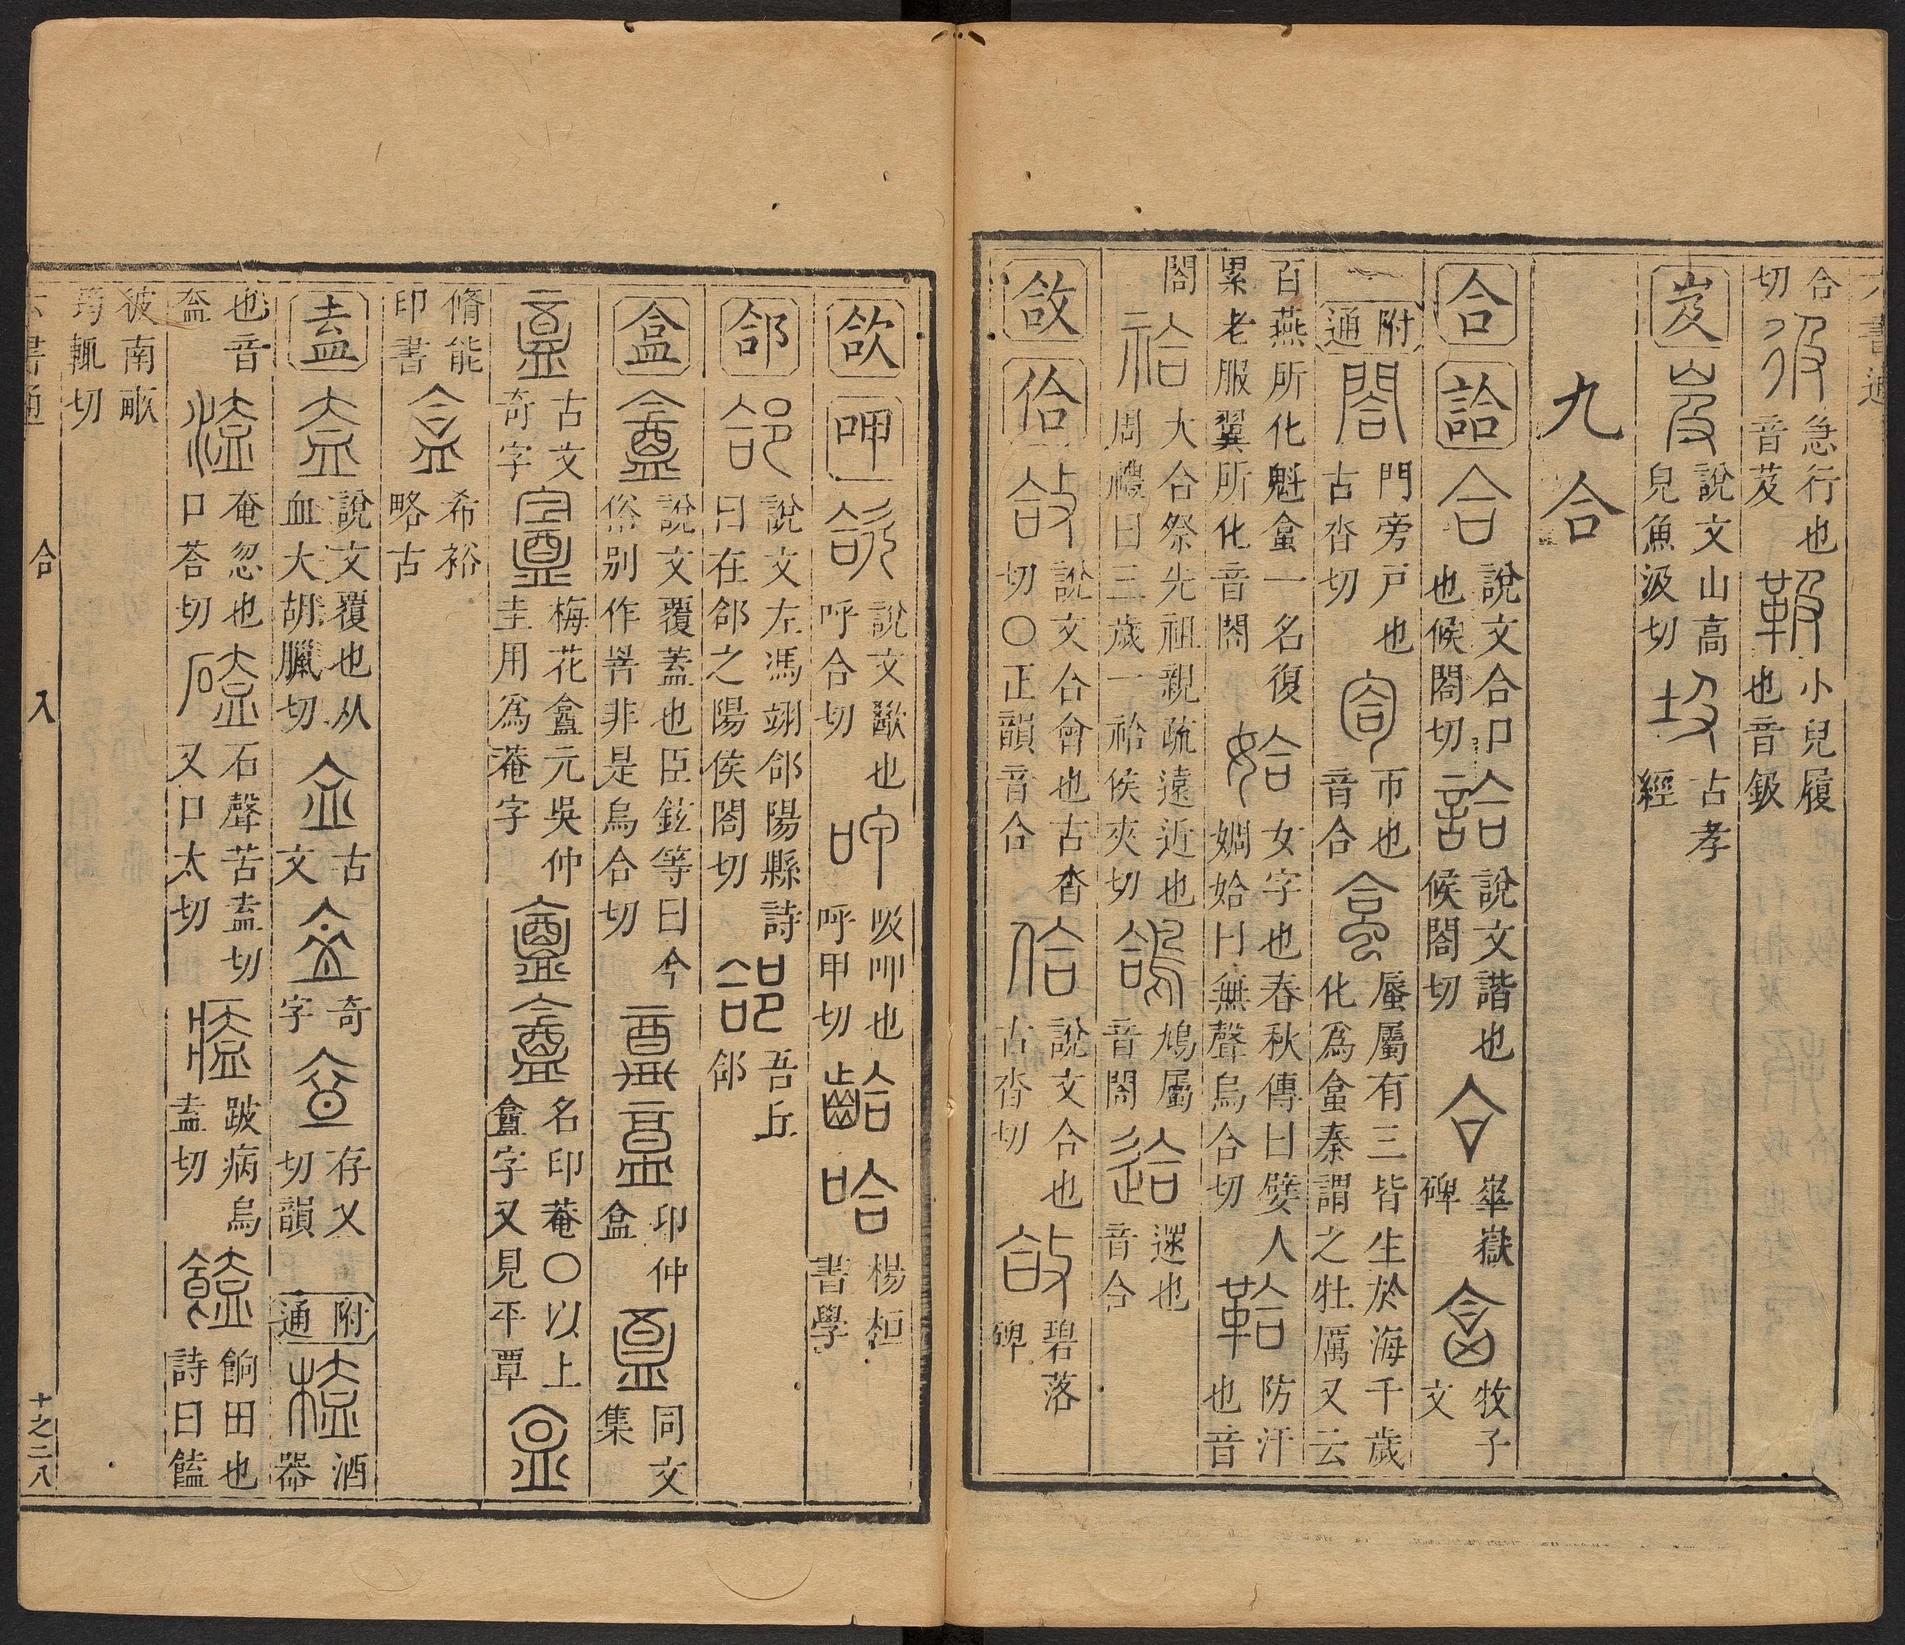 合 急行也 小兒履
切 音芨 也音鈒
岌 說文山高皃魚汲切 古孝經
九合
合 詥 說文合口也候閤切 說文諧也候閤切 華嶽碑 牧子文
附通 門旁戶也古沓切 帀也音合 蜃屬有三皆生於海千歲化爲蛤秦謂之牡厲又云
百燕所化魁蛤一名復累老服翼所化音閤 女字也春秋傳曰嬖人婤姶一曰無聲烏合切 防汗也音
閤 大合祭先祖親疏遠近也周禮曰三歲一祫侯夾切 鳩屬音閤 遝也音合
敆 佮 說文合會也古沓切〇正韻音合 說文合也古沓切 碧落碑
欱 呷 說文歠也呼合切 吸呷也呼甲切 楊桓書學
郃 說文左馮翊郃陽縣詩曰在郃之陽侯閤切 吾丘郃
盒 說文覆蓋也臣鉉等曰今俗別作罯非是烏合切 印仲盒 同文集
古文奇字 梅花盦元吳仲圭用爲菴字 名印菴〇以上盦字又見平覃
脩能印書 希裕略古
盍 說文覆也从血大胡臘切 古文 奇字 存乂切韻 附通 酒器
也音盍 奄忽也口荅切 石聲苦盍切又口太切 跛病烏盍切 餉田也詩曰饁
彼南畝筠輒切
六書通 合 入 十之二八